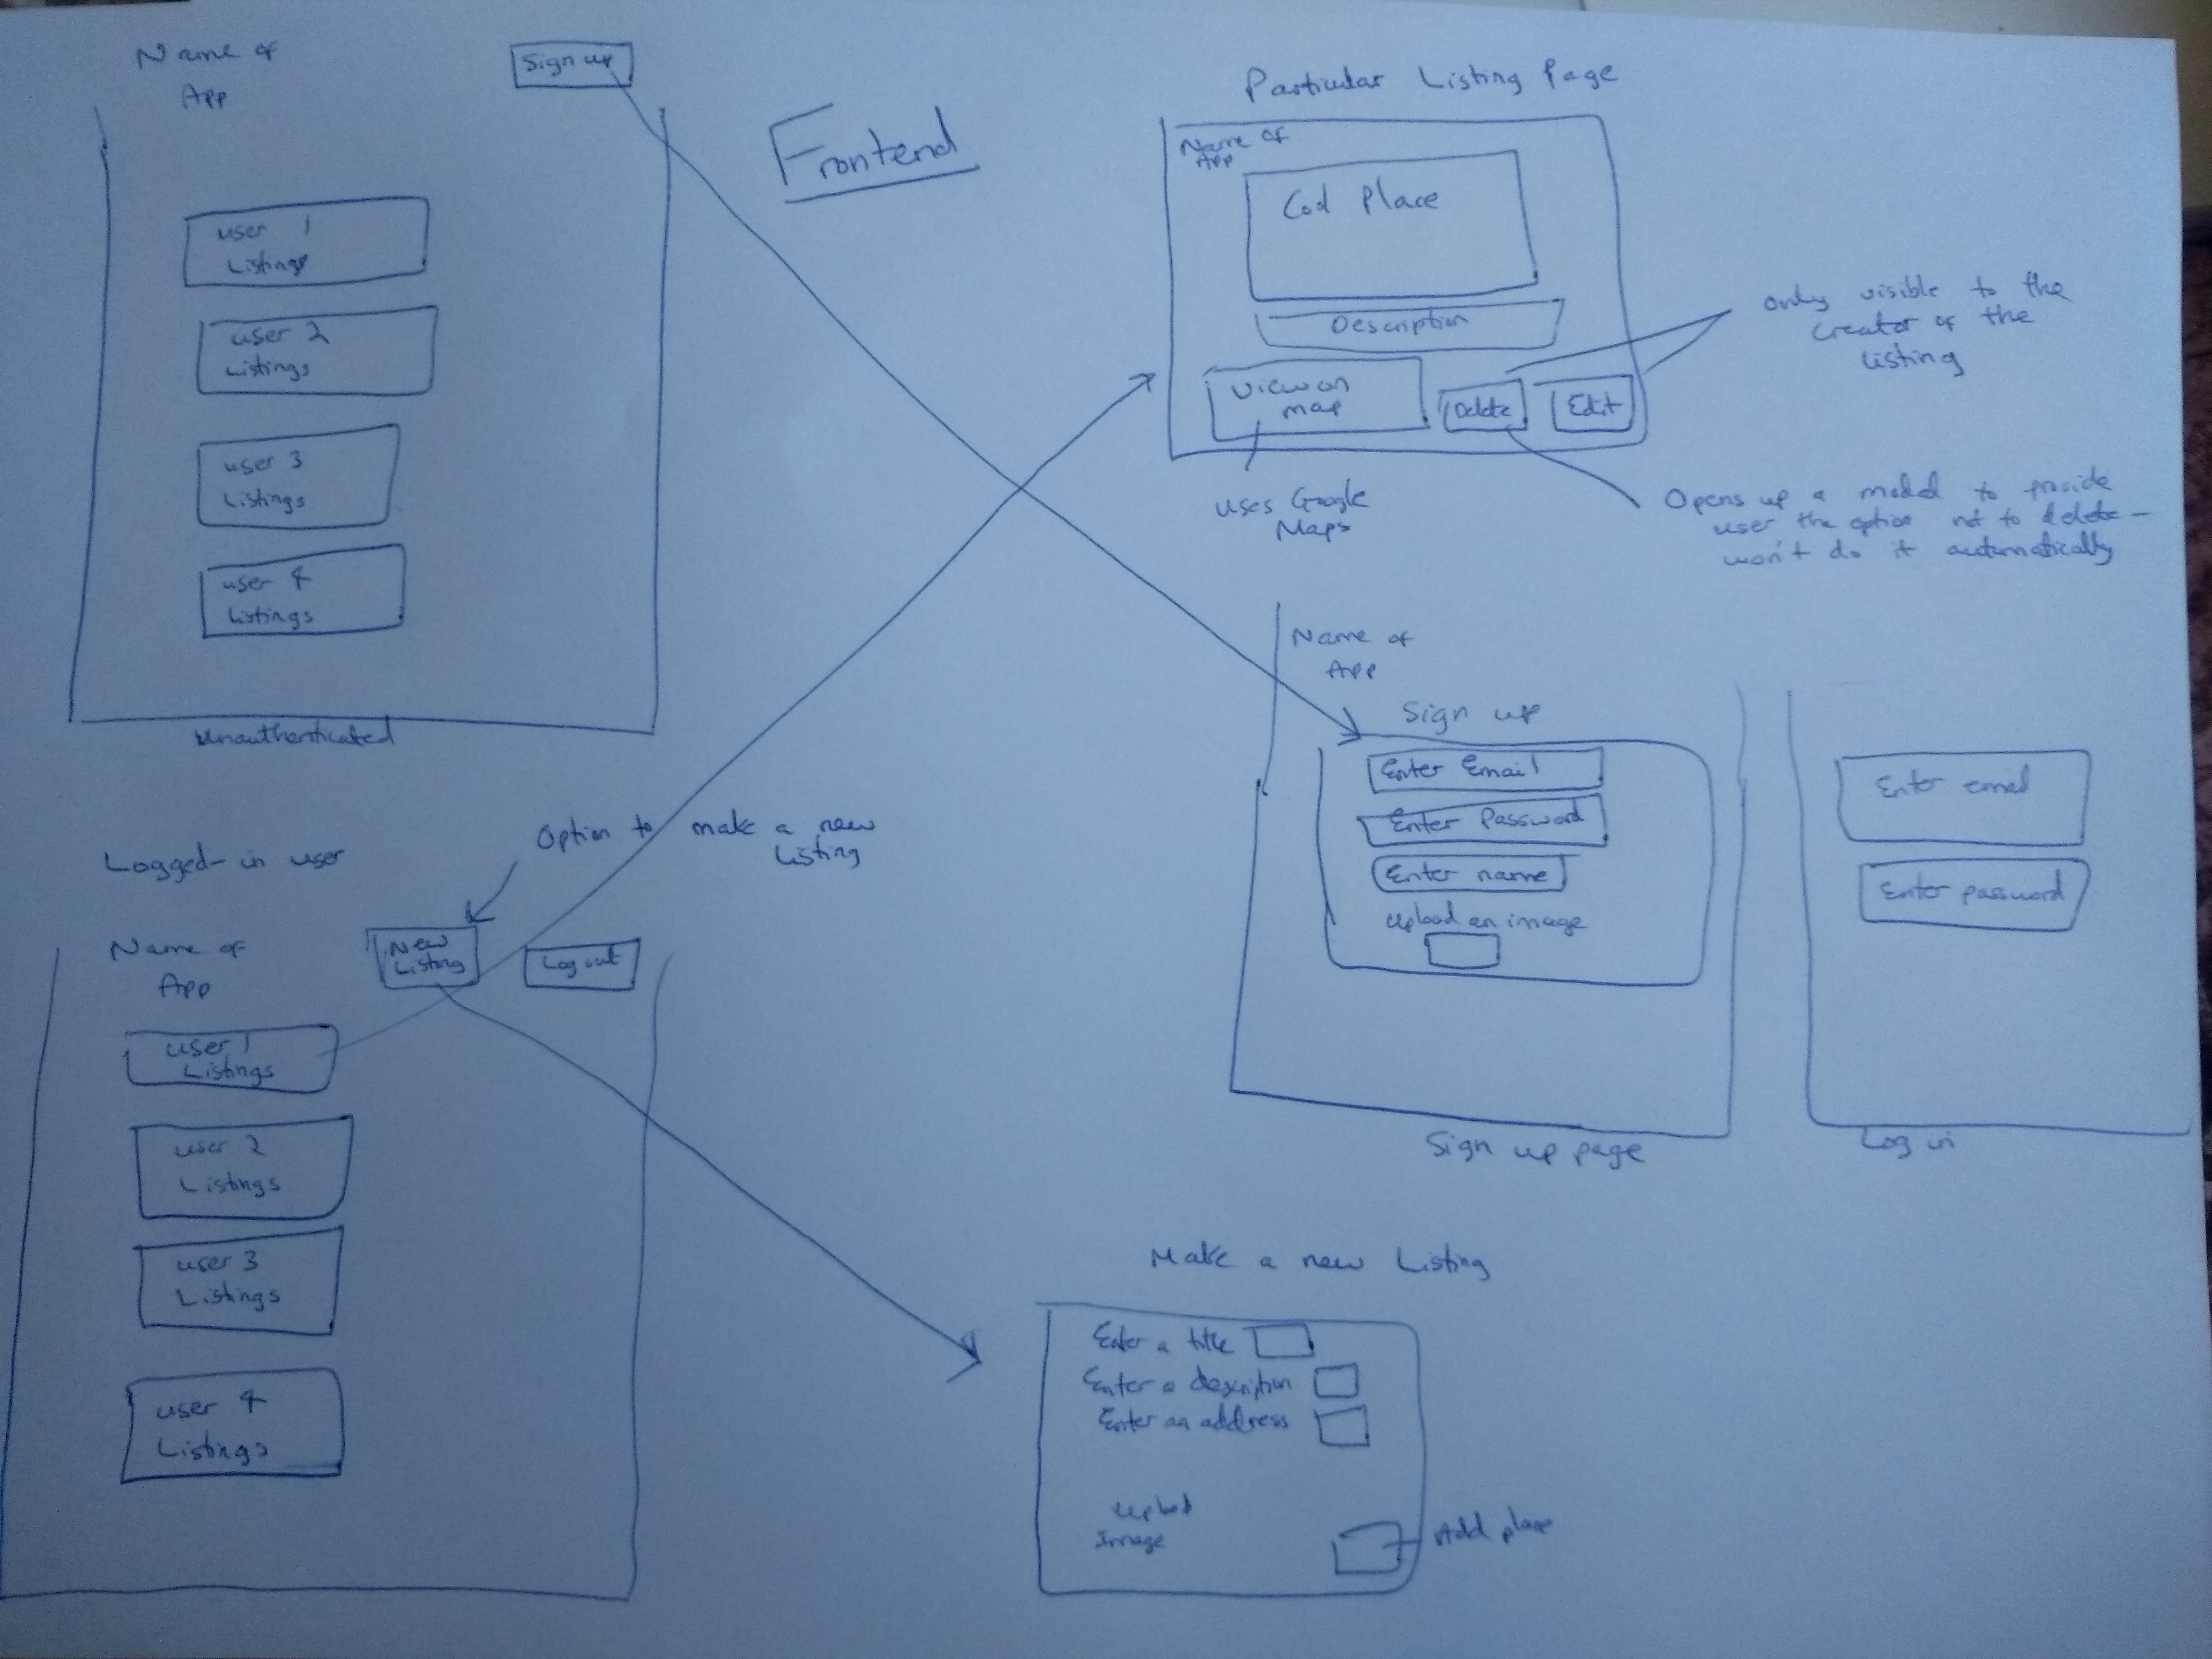 Name of
App
Sign up
user 1
Listings
user 2
Listings
user 3
Listings
user 4
Listings
Unauthenticated
Frontend
Particular Listing Page
Name of
App
Cool Place
Description
View on
map
Delete
Edit
only visible to the
creator of the
listing
uses Google
Maps
Opens up a modal to provide
user the option not to delete -
won't do it automatically
Name of
App
Sign up
Enter Email
Enter Password
Enter name
Upload an image
Sign up page
Enter email
Enter password
Log in
Logged-in user
Option to make a new
Listing
Name of
App
New
Listing
Log out
user 1
Listings
user 2
Listings
user 3
Listings
user 4
Listings
Make a new Listing
Enter a title
Enter a description
Enter an address
Upload
Image
Add place